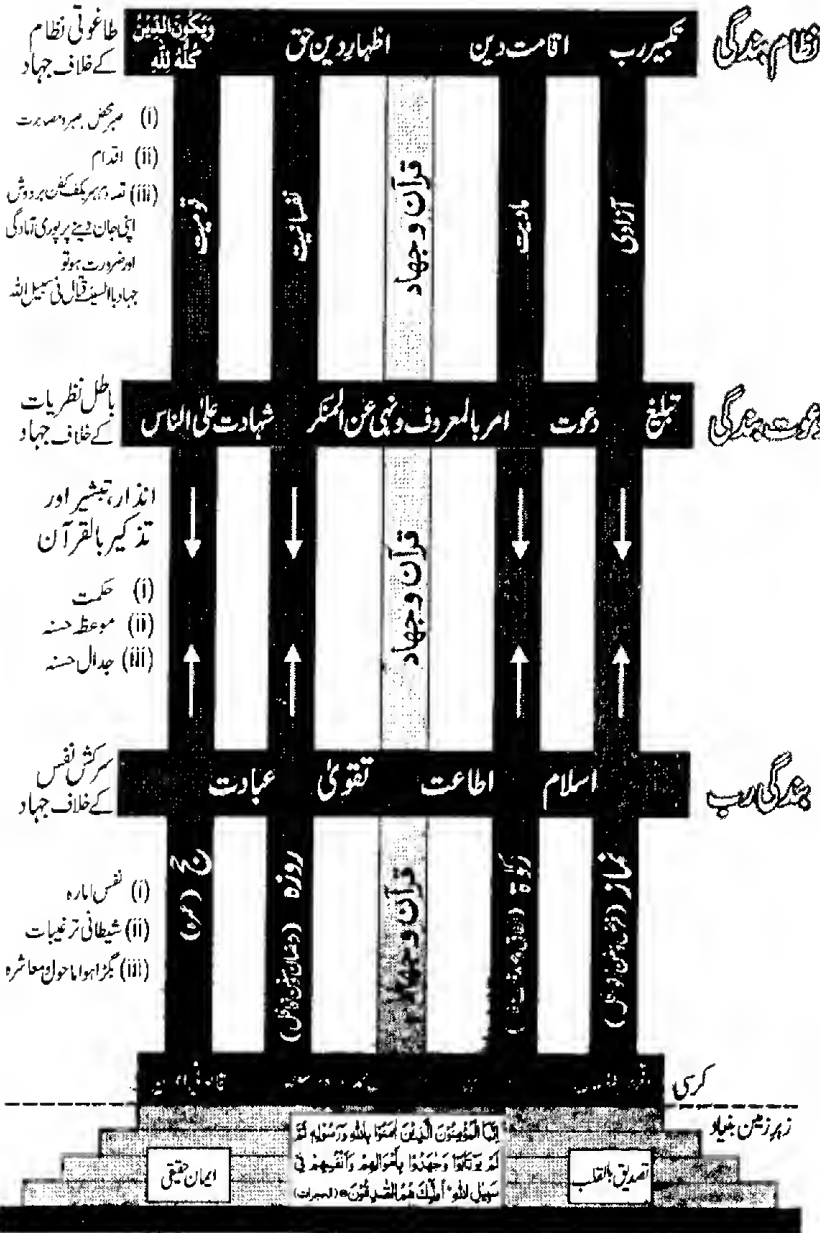 نظام بندگی
تکبیر رب اقامت دین اظہار دین حق وَیَکُونَ الدِّیْنُ کُلُّهٗ لِلّٰهِ
طاغوتی نظام
کے خلاف جہاد
(i) صبر محض، صبر و مصابرت
(ii) اقدام
(iii) تصادم، سر بکف کفن بردوش
اپنی جان دینے پر پوری آمادگی
اور ضرورت ہو تو
جہاد بالسیف قتال فی سبیل اللہ
آزادی
مادیت
قرآن و جهاد
نفسانیت
قومیت
دعوت بندگی
تبلیغ دعوت امر بالمعروف و نہی عن المنکر شہادت علی الناس
باطل نظریات
کے خلاف جہاد
انذار، تبشیر اور
تذکیر بالقرآن
(i) حکمت
(ii) موعظہ حسنہ
(iii) جدال حسنہ
قرآن و جهاد
بندگی رب
اسلام اطاعت تقویٰ عبادت
سرکش نفس
کے خلاف جہاد
(i) نفس امارہ
(ii) شیطانی ترغیبات
(iii) بگڑا ہوا ماحول و معاشرہ
نماز
زکوٰۃ
قرآن و جهاد
روزہ (رمضان
حج (عمرہ)
کرسی
زیر زمین بنیاد
تصدیق بالقلب
اِنَّمَا الْمُؤْمِنُوْنَ الَّذِیْنَ اٰمَنُوْا بِاللّٰهِ وَرَسُوْلِهٖ ثُمَّ
لَمْ یَرْتَابُوْا وَجٰهَدُوْا بِاَمْوَالِهِمْ وَاَنْفُسِهِمْ فِیْ
سَبِیْلِ اللّٰهِ ؕ اُولٰٓئِكَ هُمُ الصّٰدِقُوْنَ (الحجرات)
ایمان حقیقی